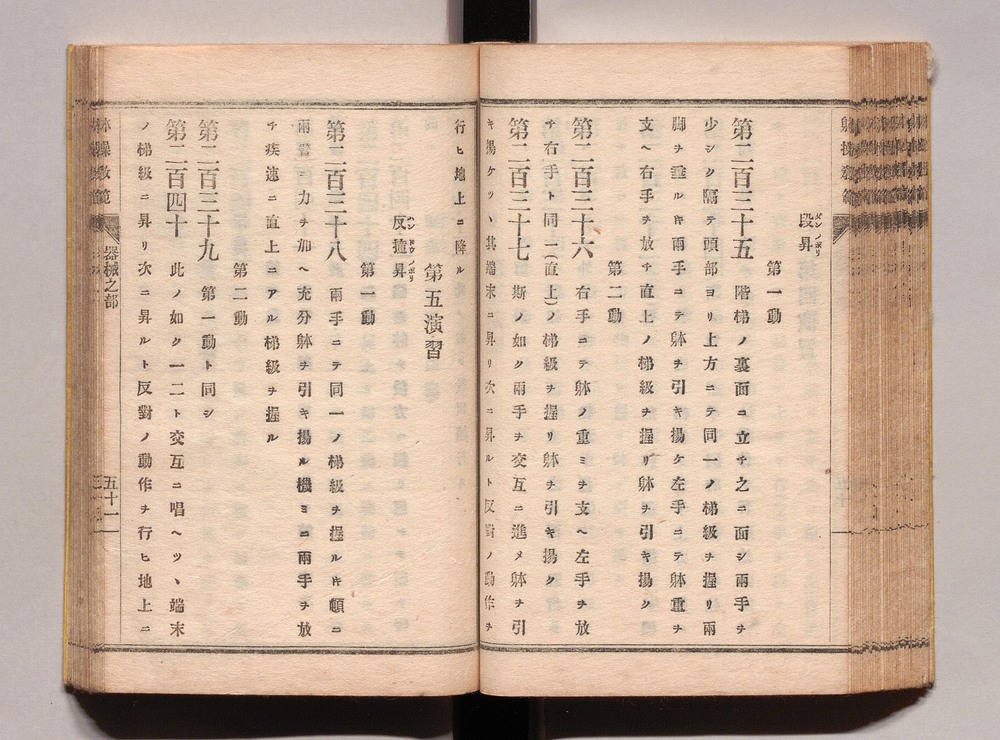 段昇
ダンノボリ
第一動
第二百三十五 階梯ノ裏面ニ立チ之ニ面シ兩手ヲ
少シク隔テ頭部ヨリ上方ニテ同一ノ梯級ヲ握リ兩
脚ヲ垂ル𪜈兩手ニテ躰ヲ引キ揚ケ左手ニテ躰重ヲ
支ヘ右手ヲ放チ直上ノ梯級ヲ握リ躰ヲ引キ揚ク
第二動
第二百三十六 右手ニテ躰ノ重ミヲ支ヘ左手ヲ放
チ右手ト同一(直上)ノ梯級ヲ握リ躰ヲ引キ揚ク
第二百三十七 斯ノ如ク兩手ヲ交互ニ進メ躰ヲ引
キ揚ケツヽ其端末ニ昇リ次ニ昇ルト反對ノ動作ヲ
行ヒ地上ニ降ル
第五演習
反撞昇
ハンドウノボリ
第一動
第二百三十八 兩手ニテ同一ノ梯級ヲ握ル𪜈頓ニ
兩臂ニ力ヲ加ヘ充分躰ヲ引キ揚ル機ミニ兩手ヲ放
チ疾速ニ直上ニアル梯級ヲ握ル
第二動
第二百三十九 第一動ト同シ
第二百四十 此ノ如ク一二ト交互ニ唱ヘツヽ端末
ノ梯級ニ昇リ次ニ昇ルト反對ノ動作ヲ行ヒ地上ニ
器械之部
五十一